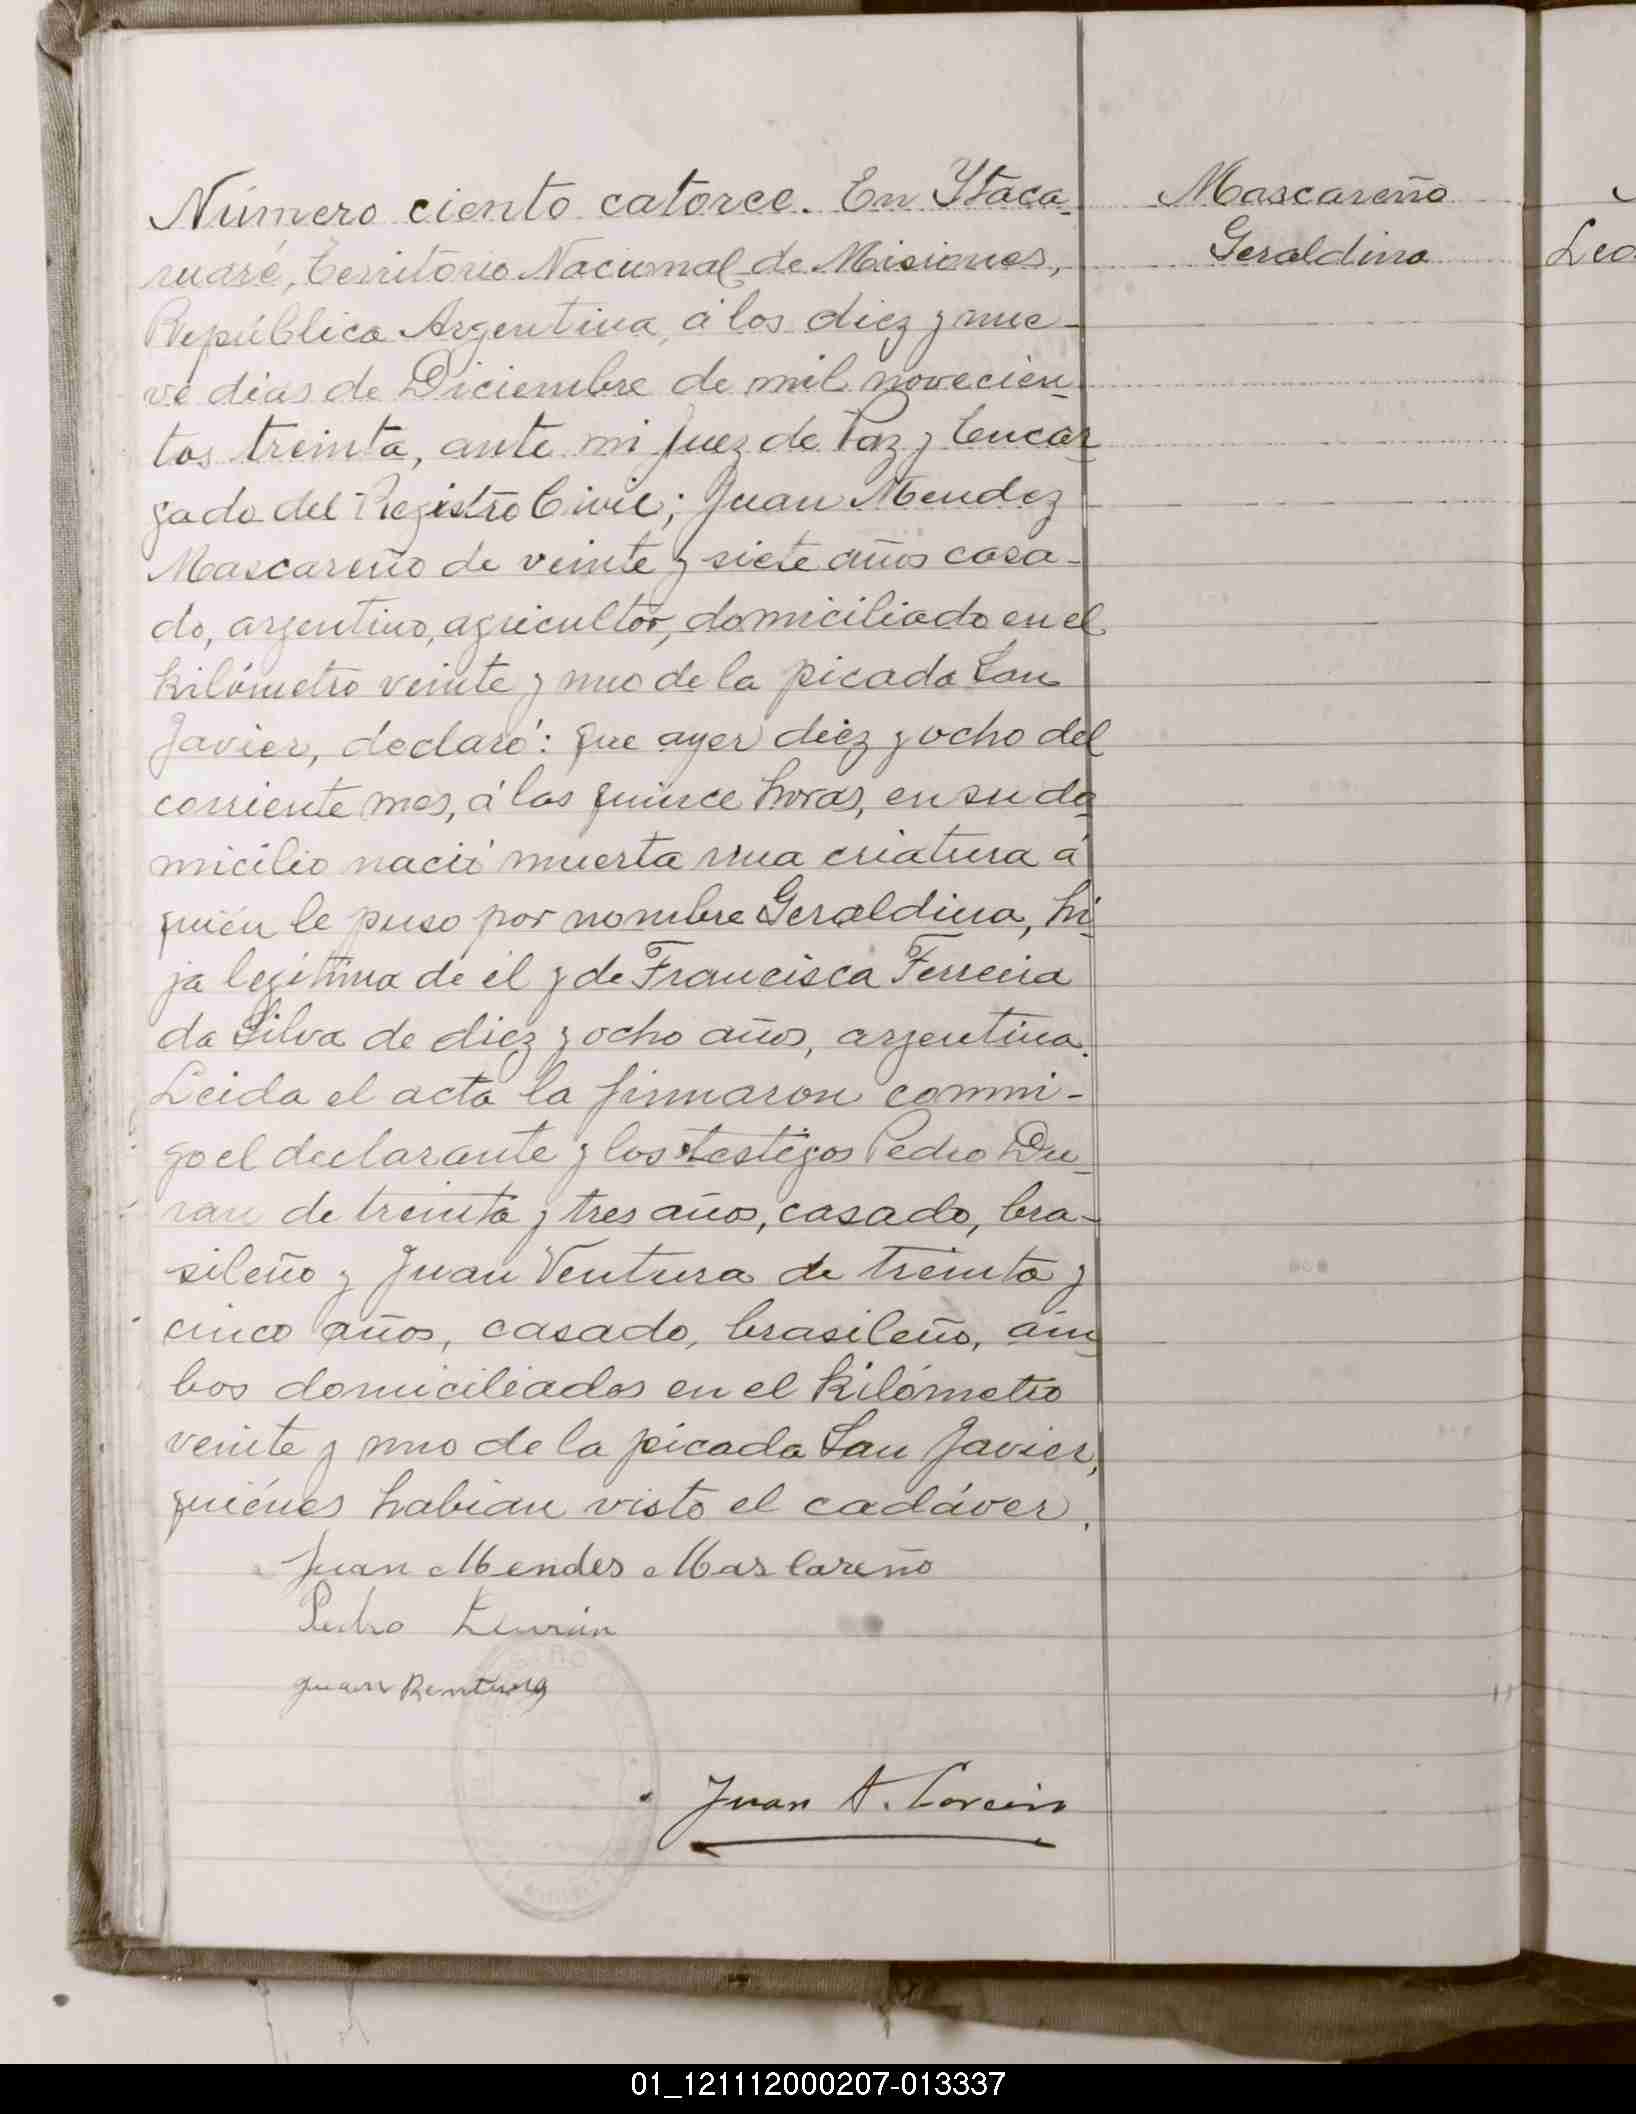 Número ciento catorce. En Ytaca-
ruaré, Territorio Nacional de Misiones,
República Argentina, á los diez y nue-
ve dias de Diciembre de mil novecien-
tos treinta, ante mi Juez de Paz y Encar-
gado del Registro Civil; Juan Mendez
Mascareño de veinte y siete años casa-
do, argentino, agricultor, domiciliado en el
kilómetro veinte y uno de la picada San
Javier, declaró: que ayer diez y ocho del
corriente mes, á las quince horas, en su do-
micilio nació muerta una criatura á
quién le puso por nombre Geraldina, hi-
ja legitima de él y de Francisca Ferreira
da Silva de diez y ocho años, argentina.
Leida el acta la firmaron conmi-
go el declarante y los testigos Pedro Du-
ran de treinta y tres años, casado, bra-
sileño y Juan Ventura de treinta y
cinco años, casado, brasileño, am-
bos domiciliados en el kilómetro
veinte y uno de la picada San Javier,
quiénes habian visto el cadáver.
Juan Mendes Mascareño
Pedro Durán
Juan Rentura
Juan A.
Mascareño
Geraldina
Leo
01_121112000207-013337